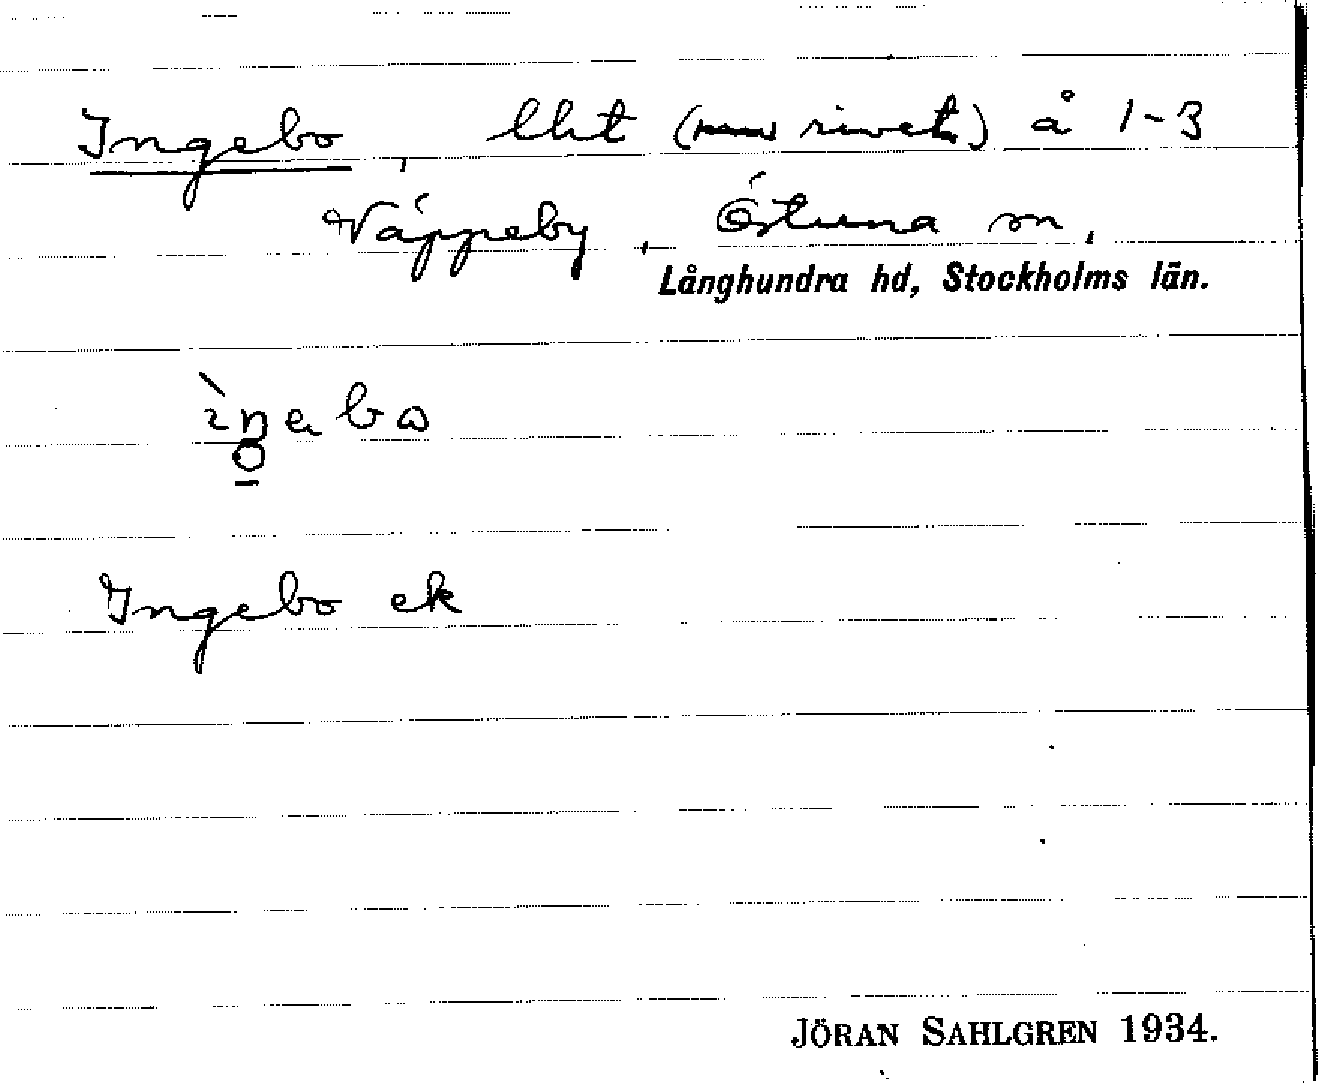 Ingebo, lht (rivet) å 1-3
Väppeby, Östuna sn,
Långhundra hd, Stockholms län.
Ingebo ek
JÖRAN SAHLGREN 1934.